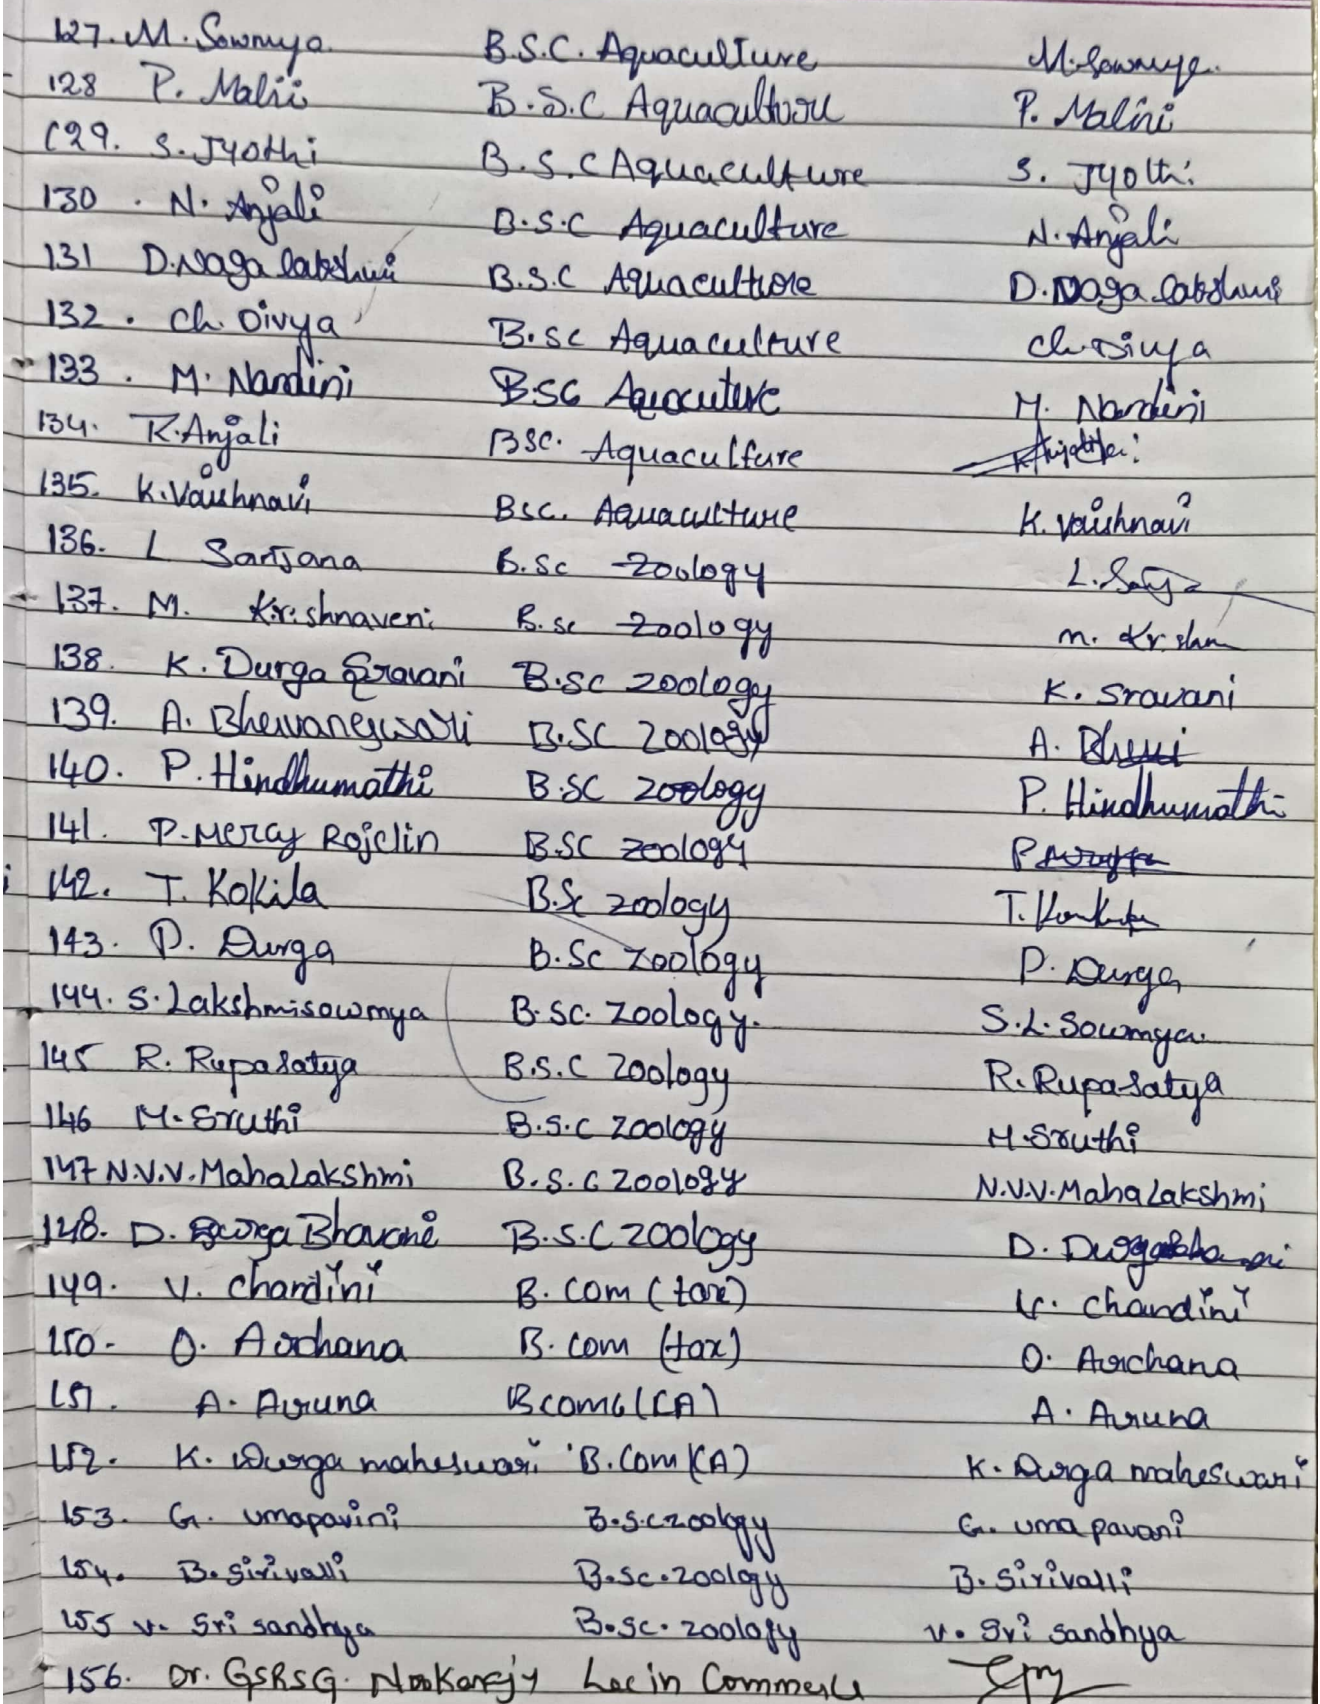 127. M. Sowmya B.S.C. Aquaculture M. Sowmya.
128 P. Malii B.S.C Aquaculture P. Malini
129. S. Jyothi B.S.C Aquaculture S. Jyothi
130 . N. Anjali B.S.C Aquaculture N. Anjali
131 D. Naga lakshmi B.S.C Aquaculture D. Naga lakshmi
132 . Ch. Divya B.sc Aquaculture ch. Divya
133 . M. Nandini B.SC Aquocuture M. Nandini
134. R. Anjali BSC. Aquaculture
135. K. Vaishnavi Bsc. Aquaculture K. Vaishnavi
136. L Sanjana B.Sc Zoology L.
137. M. Krishnaveni B.sc Zoology M. Krishn
138. K. Durga Sravani B.SC Zoology K. Sravani
139. A. Bhevaneswari B.SC Zoology A.
140. P. Hindhumathi B.SC Zoology P. Hindhumathi
141. P. Mercy Rojelin B.SC Zoology P
142. T. Kokila B.Sc Zoology T.
143. P. Durga B.Sc Zoology P. Durga
144. S. Lakshmisowmya B.SC. Zoology. S.L. Sowmya.
145 R. Rupasatya B.S.C Zoology R. Rupasatya
146 M. Sruthi B.S.C Zoology M. Sruthi
147 N.V.V. MahaLakshmi B.S.C Zoology N.V.V. MahaLakshmi
148. D. Durga Bhavani B.S.C Zoology D.
149. V. Chandini B. Com (tax) V. Chandini
150- O. Archana B. Com (tax) O. Archana
151. A. Aruna Bcom (CA) A. Aruna
152. K. Durga maheswari B.Com (CA) K. Durga maheswari
153. G. umapavini B.s.c zoology G. uma pavani
154. B. Sirivalli B.sc. zoology B. Sirivalli
155 v. Sri sandhya B.sc. zoology v. Sri sandhya
156. Dr. GSRSG. Nookaraju Lec in Commerce